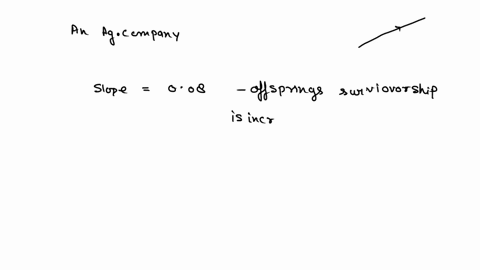 An Ag. company
Slope = 0.08 - offsprings surviovorship
is incr